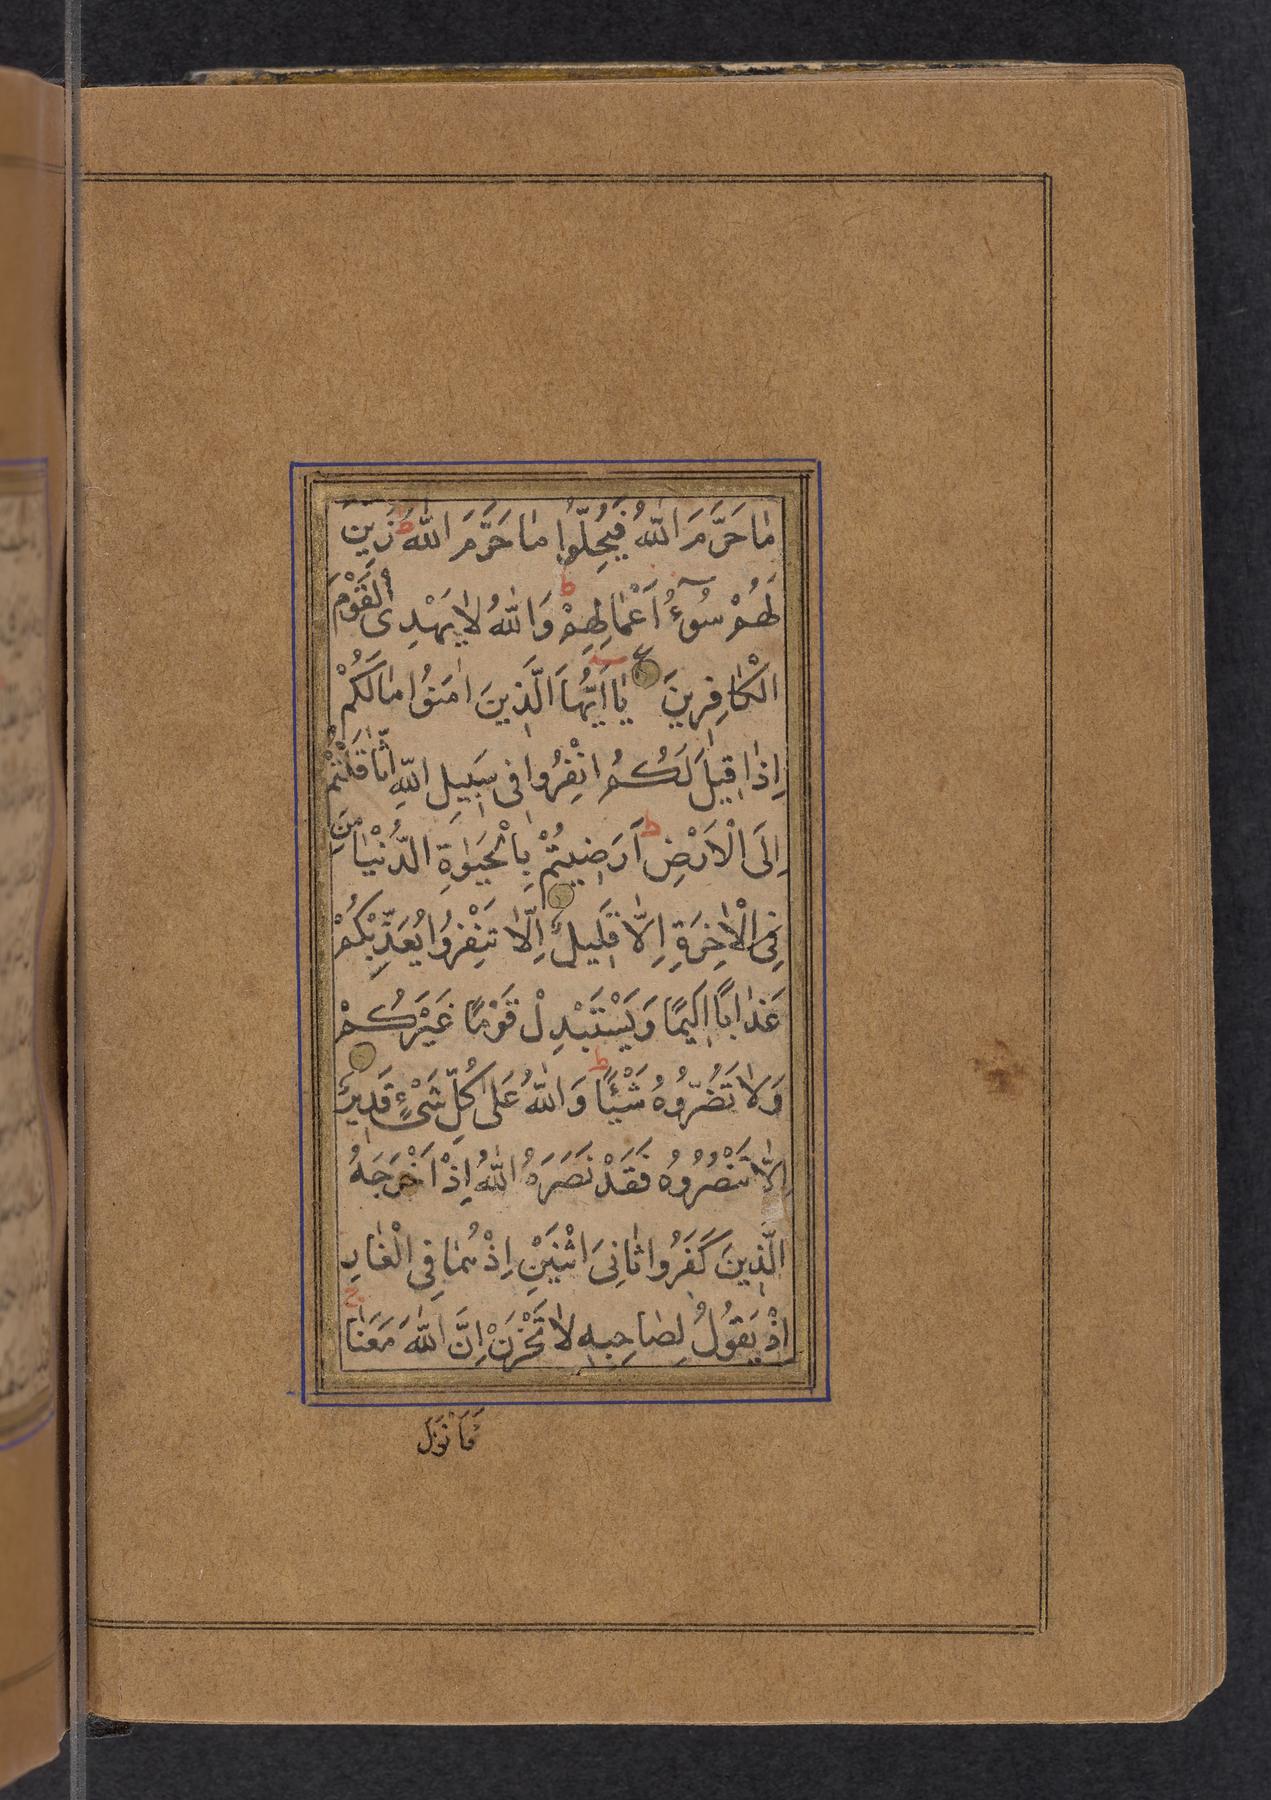 مٰا حَرَّمَ اللّٰهُ فَيُحِلُّوا مٰا حَرَّمَ اللّٰهُ ط زُيِّنَ
لَهُمْ سُوٓءُ اَعْمٰالِهِمْ ط وَاللّٰهُ لٰا يَهْدِى الْقَوْمَ
الْكٰافِرِينَ ع يٰا اَيُّهَا الَّذِينَ اٰمَنُوا مٰا لَكُمْ
اِذٰا قِيلَ لَكُمُ انْفِرُوا فِى سَبِيلِ اللّٰهِ اثّٰاقَلْتُمْ
اِلَى الْاَرْضِ ط اَرَضِيتُمْ بِالْحَيٰوةِ الدُّنْيٰا مِنَ
فِى الْاٰخِرَةِ اِلّٰا قَلِيلٌ اِلّٰا تَنْفِرُوا يُعَذِّبْكُمْ
عَذٰابًا اَلِيمًا وَيَسْتَبْدِلْ قَوْمًا غَيْرَكُمْ
وَلٰا تَضُرُّوهُ شَيْئًا ط وَاللّٰهُ عَلٰى كُلِّ شَىْءٍ قَدِيرٌ
اِلّٰا تَنْصُرُوهُ فَقَدْ نَصَرَهُ اللّٰهُ اِذْ اَخْرَجَهُ
الَّذِينَ كَفَرُوا ثٰانِىَ اثْنَيْنِ اِذْ هُمٰا فِى الْغٰارِ
اِذْ يَقُولُ لِصٰاحِبِهِ لٰا تَحْزَنْ اِنَّ اللّٰهَ مَعَنٰا ج
فَاَنْزَلَ